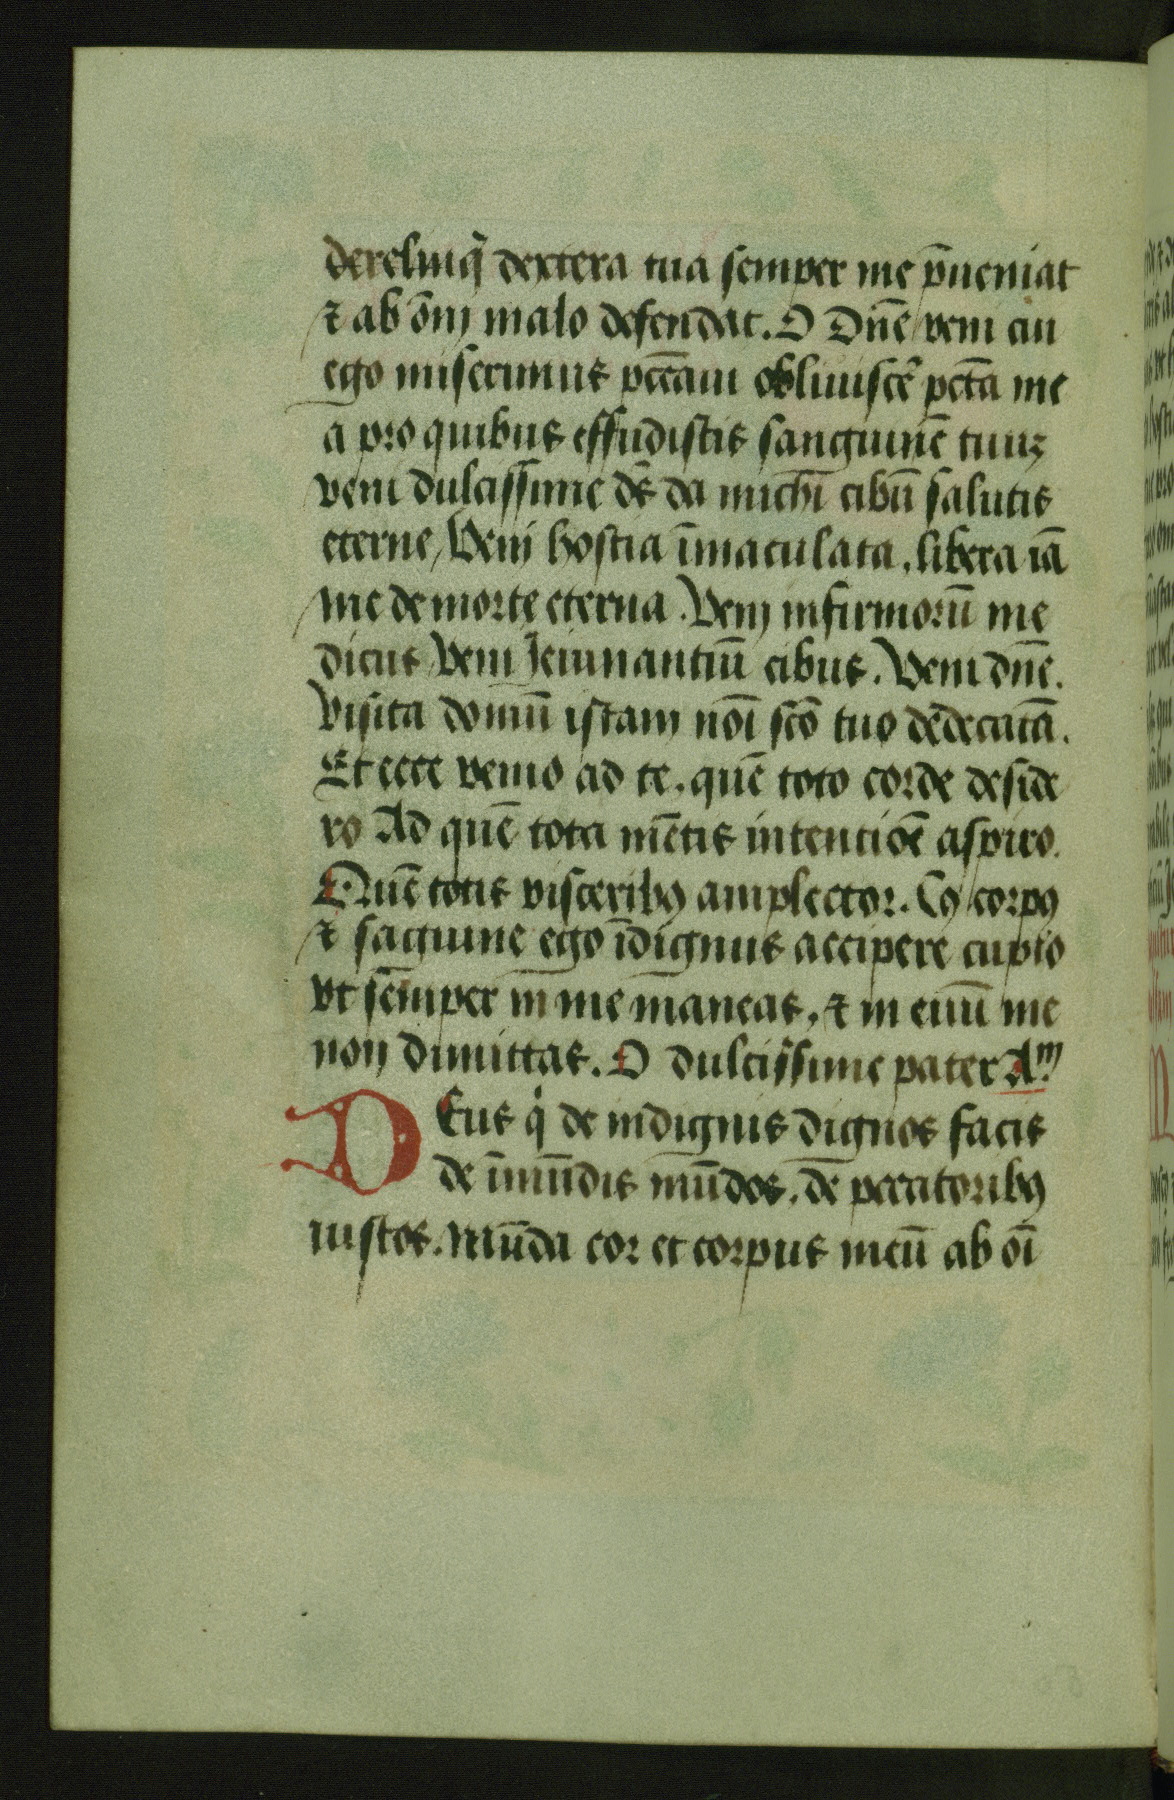 derelinq̄ dextera tua semper me p̄ueniat
⁊ ab om̄j malo defendat. O Dn̄e veni cui
ego miserimus pcc̄aui obliuiscēr pctā me
a pro quibus effudistis sanguinē tuuꝫ
veni dulcissime dē da michi cibū salutis
eterne, Venj hostia īmaculata, libera iā
me de morte eterna. Venj infirmorū me
dicus Veni Jeiunantiū cibus. Veni dn̄e.
Visita domū istam noī scō tuo dedecatā.
Et ecce venio ad te. quē toto corde deside
ro Ad quē tota mētis intentiōe aspiro.
Quē totis visceribꝰ amplector. Cꝰ corpꝰ
⁊ saguine ego īdignus accipere cupio
vt semper in me maneas, ⁊ in euū me
non dimittas. O dulcissime pater Aᵐ
DEus q̇ de indignis dignos facis
de īmūdis mūdos, de peccatoribꝰ
iustos. Mūda cor et corpus meū ab oī